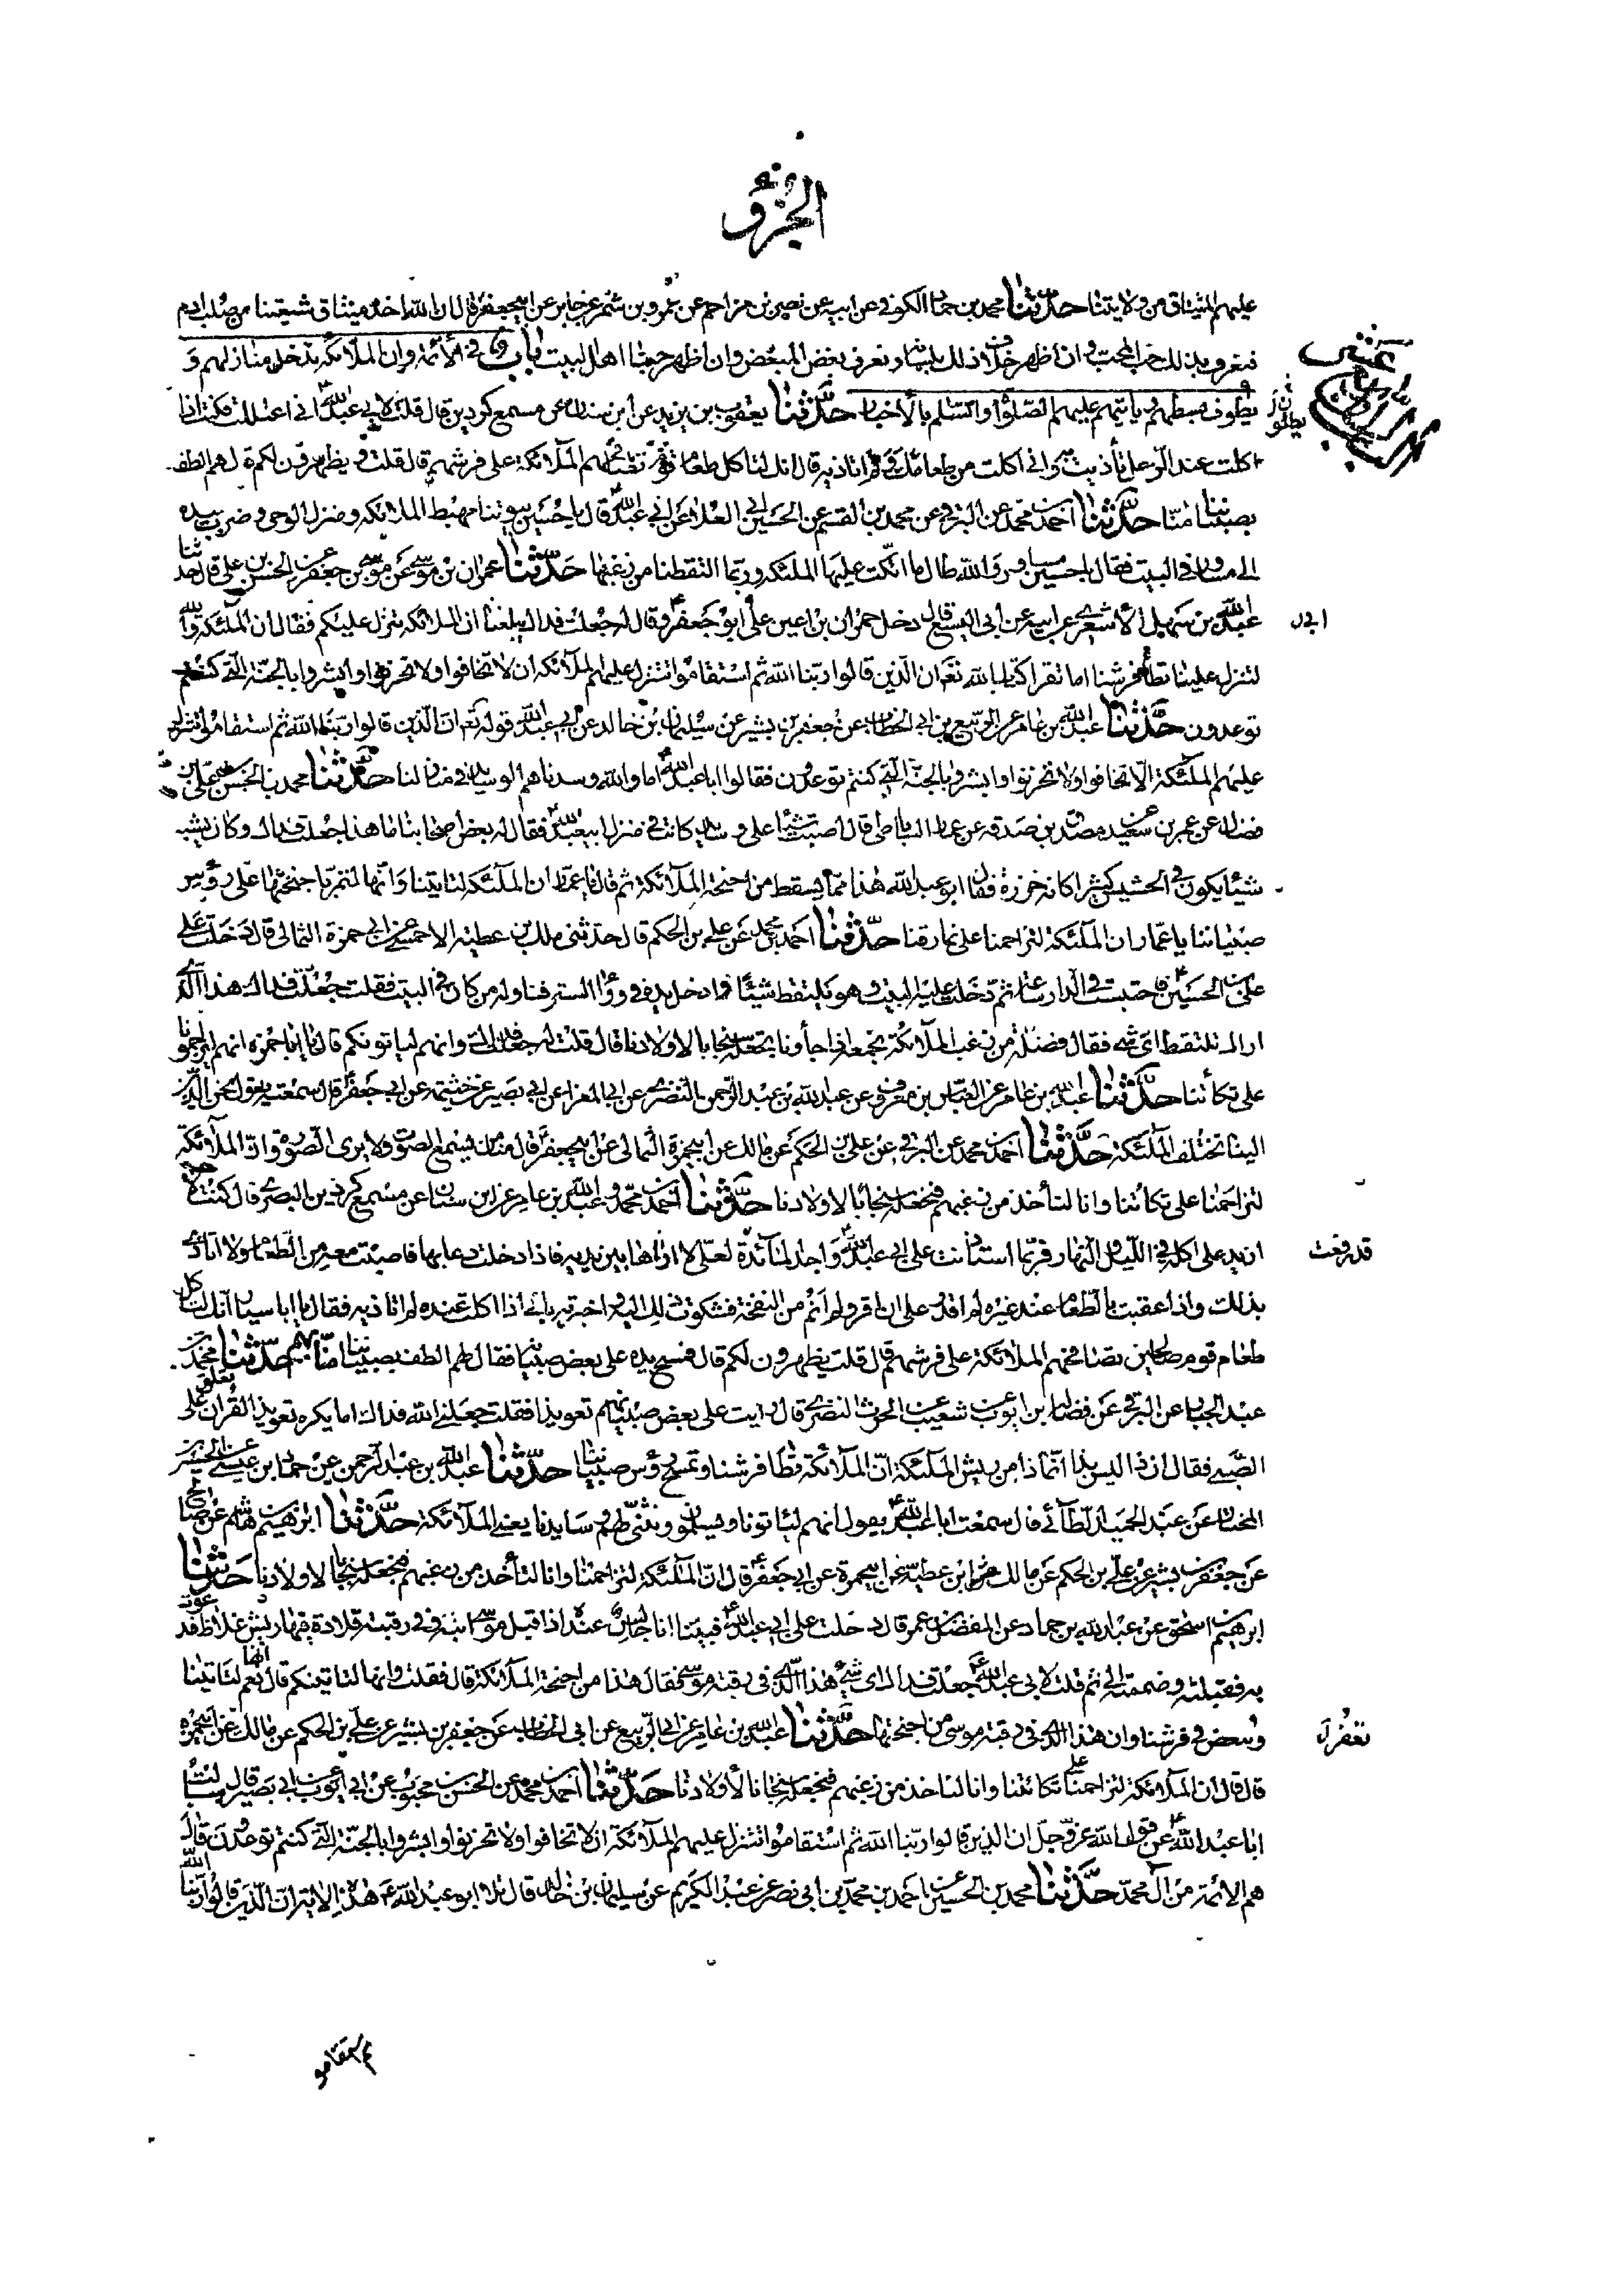 الجزؤ
عليهم الميثاق من ولايتنا حدثنا محمد بن حماد الكوفي عن ابيه عن نصر بن مزاحم عن عمرو بن شمر عن جابر عن ابيجعفر قال ان الله اخذ ميثاق شيعتنا من صلب ادم
فنعرف بذلك حب المحب وان اظهر خلاف ذلك بلسانه ونعرف بغض المبغض وان اظهر حبنا اهل البيت باب في الأئمة وان الملائكة تدخل منازلهم و
يطوف بسطهم ويأتيهم عليهم الصلوة والسلم بالأخبار حدثنا يعقوب بن يزيد عن ابن سنان عن مسمع كردين قال قلت لابي عبد الله اني اعتللت فكنت اذا
اكلت عند الرجل تأذيت به واني اكلت من طعامك ولم اتاذ به قال انك لتأكل طعام قوم تصافحهم الملآئكة على فرشهم قال قلت ويظهرون لكم قال هم الطف
بصبياننا منا حدثنا احمد بن محمد عن البرقي عن محمد بن القسم عن الحسين ابي العلا عن ابي عبد الله قال يا حسين بيوتنا مهبط الملائكه ومنزل الوحي وضرب بيده
الى مساور في البيت فقال يا حسين مساور والله طال ما اتكت عليها الملئكه وربما التقطنا من زغبها حدثنا عمران بن موسى عن موسى بن جعفر عن الحسن بن علي قال حدثنا
عبد الله بن سهيل الأشعري عن ابيه عن ابى اليسع قال دخل حمران بن اعين على ابو جعفر وقال له جعلت فداك يبلغنا ان الملائكه تنزل عليكم فقال ان الملئكة والله
لتنزل علينا تطأ فرشنا اما تقرأ كتاب الله تعم ان الذين قالوا ربنا الله ثم استقاموا تتنزل عليهم الملآئكة ان لا تخافوا ولا تحزنوا وابشروا بالجنة التي كنتم
توعدون حدثنا عبد الله بن عامر عن الربيع بن ابي الخطاب عن جعفر بن بشير عن سليمان بن خالد عن ابي عبد الله قوله تعم ان الذين قالوا ربنا الله ثم استقاموا تتنزل
عليهم الملئكة الا تخافوا ولا تحزنوا وابشروا بالجنة التي كنتم توعدون فقال ابا عبد الله اما والله وسدناهم الوسايد في منازلنا حدثنا محمد بن الحسن عن علي بن
فضال عن عمر بن سعيد عن مصدق بن صدقه عن عمار الساباطي قال اصبت شيئا على وسايد كانت في منزل ابيعبد الله فقال له بعض اصحابنا ما هذا جعلت فداك وكان يشبه
شيئا يكون في الحشيش كثيرا كانه خرزة فقال ابو عبد الله هذا مما يسقط من اجنحة الملآئكة ثم قال يا عمار ان الملآئكة لتأتينا وانها لتمر باجنحتها على رؤس
صبياننا يا عمار ان الملئكة لتزاحمنا على نمارقنا حدثنا احمد بن محمد عن علي بن الحكم قال حدثني ملك بن عطيه الاحمسي عن ابي حمزة الثمالى قال دخلت على
علي بن الحسين فاحتبست في الدار ساعة ثم دخلت عليه البيت وهو يلتقط شيئا وادخل يده في وراء الستر فناوله من كان في البيت فقلت جعلت فداك هذا الذي
اراك تلتقط اي شى فقال فضلة من زغب الملآئكة نجمعه اذا جاؤنا نجعله سنجابا لاولادنا قال قلت له جعلت فداك وانهم لياتونكم قال يا با حمزه انهم ليزاحمونا
على تكأتنا حدثنا عبد الله بن عامر عن العباس بن معروف عن عبد الله بن عبد الرحمن النضري عن ابي المغرا عن ابي بصير عن خثيمه عن ابي جعفر قال سمعته يقول نحن الذين
الينا تختلف الملئكة حدثنا احمد بن محمد عن البرقي عن علي بن الحكم عن مالك عن ابيحمزة الثمالى عن ابيجعفر قال منا من يسمع الصوت ولا يرى الصورة وان الملائكة
لتزاحمنا على تكأتنا وانا لنأخذ من زغبهم فنجعله سنجابا لاولادنا حدثنا احمد بن محمد وعبد الله بن عامر عن ابن سنان عن مسمع كردين البصري قال كنت لا
ازيد على اكله في الليل والنهار فربما استأذنت على ابي عبد الله واجد المآئدة لعلي لا اراها بين يديه فاذا دخلت دعا بها فاصبت معه من الطعام ولا اتأذى
قد رفعت
بذلك واذا عقبت بالطعام عند غيره لم اقدر على ان اقر ولم انم من النفخة فشكوت ذلك اليه واخبرته باني اذا اكلت عنده لم اتاذ به فقال يا ابا سيار انك لتأكل
طعام قوم صالحين تصافحهم الملائكة على فرشهم قال قلت يظهرون لكم قال فمسح يده على بعض صبيانه فقال هم الطف بصبياننا منا بهم حدثنا محمد بن
عبد الجبار عن البرقي عن فضالة ابن ايوب عن شعيب عن الحرث النضري قال رايت على بعض صبيانهم تعويذا فقلت جعلني الله فداك اما يكره تعويذ القرآن يعلق على
الصبي فقال ان ذا ليس بذا انما ذا من ريش الملئكة ان الملآئكة تطأ فرشنا وتمسح رؤس صبياننا حدثنا عبد الله بن عبد الرحمن عن حماد ابن عيسى عن الحسين بن
المختار عن عبد الحميد الطائى قال سمعت ابا عبد الله يقول انهم لياتونا ويسلمون ونثني لهم وسايدنا يعني الملآئكة حدثنا ابرهيم بن هاشم عن صالح
عن جعفر بن بشير عن علي بن الحكم عن مالك ابن عطيه عن ابيحمزة عن ابي جعفر قال ان الملئكة لتزاحمنا وانا لنأخذ من زغبهم فنجعله سنجابا لاولادنا حدثنا
ابرهيم بن اسحق عن عبد الله بن حماد عن المفضل بن عمر قال دخلت على ابي عبد الله فبينا انا جالس عنده اذ اقبل موسى ابنه وفي رقبته قلادة فيها ريش غلاظ فدعوت
به فقبلته وضممته الي ثم قلت لابي عبد الله جعلت فداك اى شئ هذا الذي في رقبة موسى فقال هذا من اجنحة الملآئكة قال فقلت وانها لتاتينكم قال نعم انها لتاتينا
وتعفر في فرشنا وان هذا الذي في رقبة موسى من اجنحتها حدثنا عبد الله بن عامر عن ابي الربيع عن ابي الخطاب عن جعفر بن بشير عن علي بن الحكم عن مالك عن ابيحمزه
قال قال ان الملآئكة لتزاحمنا على تكأتنا وانا لناخذ من زغبهم فنجعله سنجابا لأولادنا حدثنا احمد بن محمد عن الحسن بن محبوب عن ابي ايوب عن ابي بصير قال سئلت
ابا عبد الله عن قول الله عز وجل ان الذين قالوا ربنا الله ثم استقاموا تتنزل عليهم الملآئكة ان لا تخافوا ولا تحزنوا وابشروا بالجنة التي كنتم توعدون قال
هم الائمة من آل محمد حدثنا محمد بن الحسين عن احمد بن محمد بن ابي نصر عن عبد الكريم عن سليمان بن خالد قال تلا ابو عبد الله هذه الاية ان الذين قالوا ربنا الله
ثم استقاموا